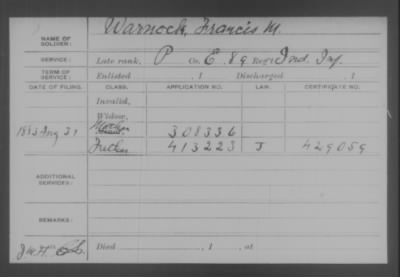 NAME OF SOLDIER: Warnock, Francis M.
SERVICE: Late rank, P Co. E, 89 Reg't Ind. Inf.
TERM OF SERVICE: Enlisted , 1 Discharged , 1
DATE OF FILING. CLASS. APPLICATION NO. LAW. CERTIFICATE NO.
Invalid,
Widow,
1883 Aug 31 Mother 308336
Father 413223 J 429059
ADDITIONAL SERVICES:
REMARKS:
Died , 1 , at